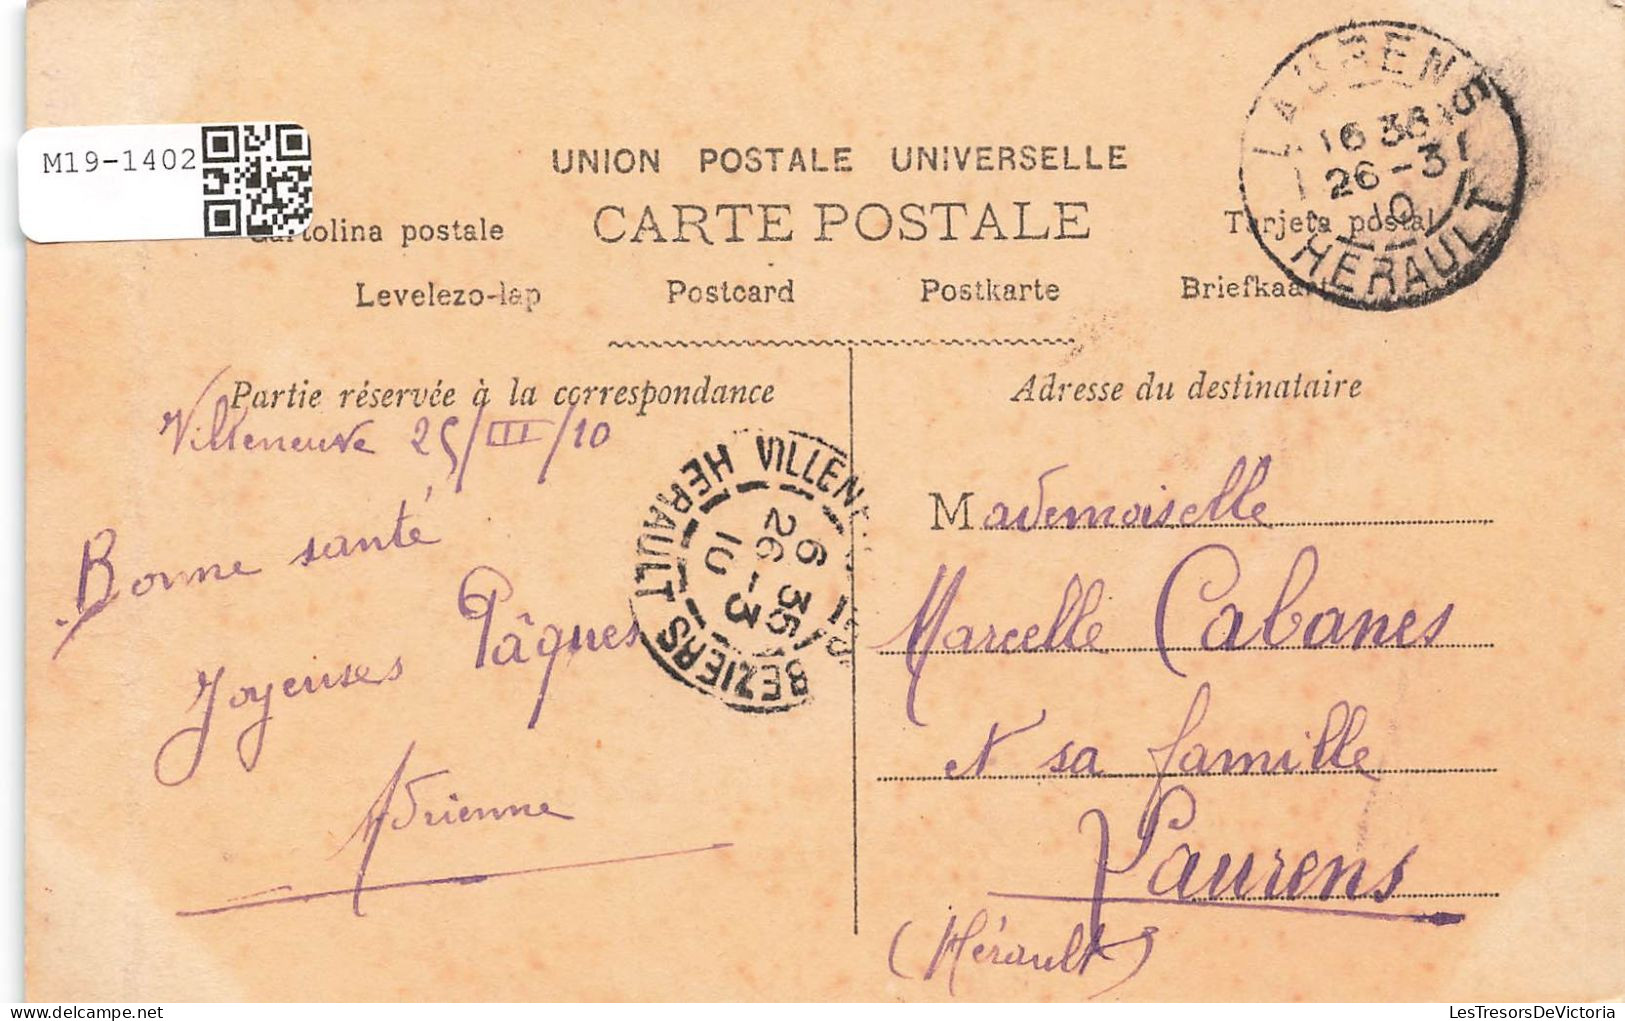 M19-1402
LAURENS
16 36
26-3
10
HERAULT
UNION POSTALE UNIVERSELLE
CARTE POSTALE
Cartolina postale
Tarjeta postal
Levelezo-lap
Postcard
Postkarte
Briefkaart
Partie réservée à la correspondance
Adresse du destinataire
Villeneuve 25/III/10
Bonne santé
Joyeuses Pâques
Adrienne
HERAULT
BEZIERS
6 35
26-3
10
Mademoiselle
Marcelle Cabanes
et sa famille
Laurens
(Hérault)
LesTresorsDeVictoria